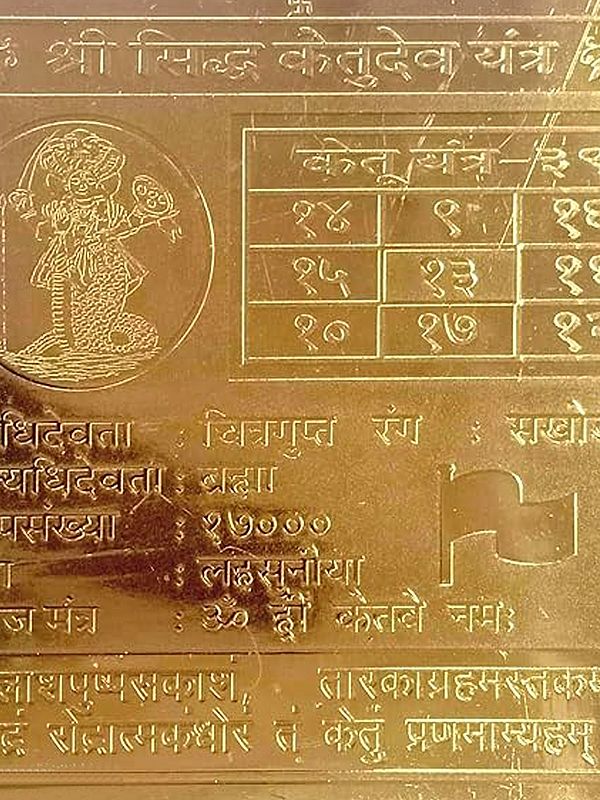 श्री सिद्ध केतुदेव यंत्र
केतू यंत्र-३९
१४ ९
१५ १३ ११
१० १७ १२
धिदेवता : चित्रगुप्त रंग :
त्यधिदेवता : ब्रह्मा
पसंख्या : १७०००
: लहसुनीया
ज मंत्र : ॐ ह्रीं केतवे नमः
लाशपुष्पसकाशं, तारकाग्रहमस्तकम
द्रं रोद्रात्मकंघोरं तं केतुं प्रणमाम्यहम्